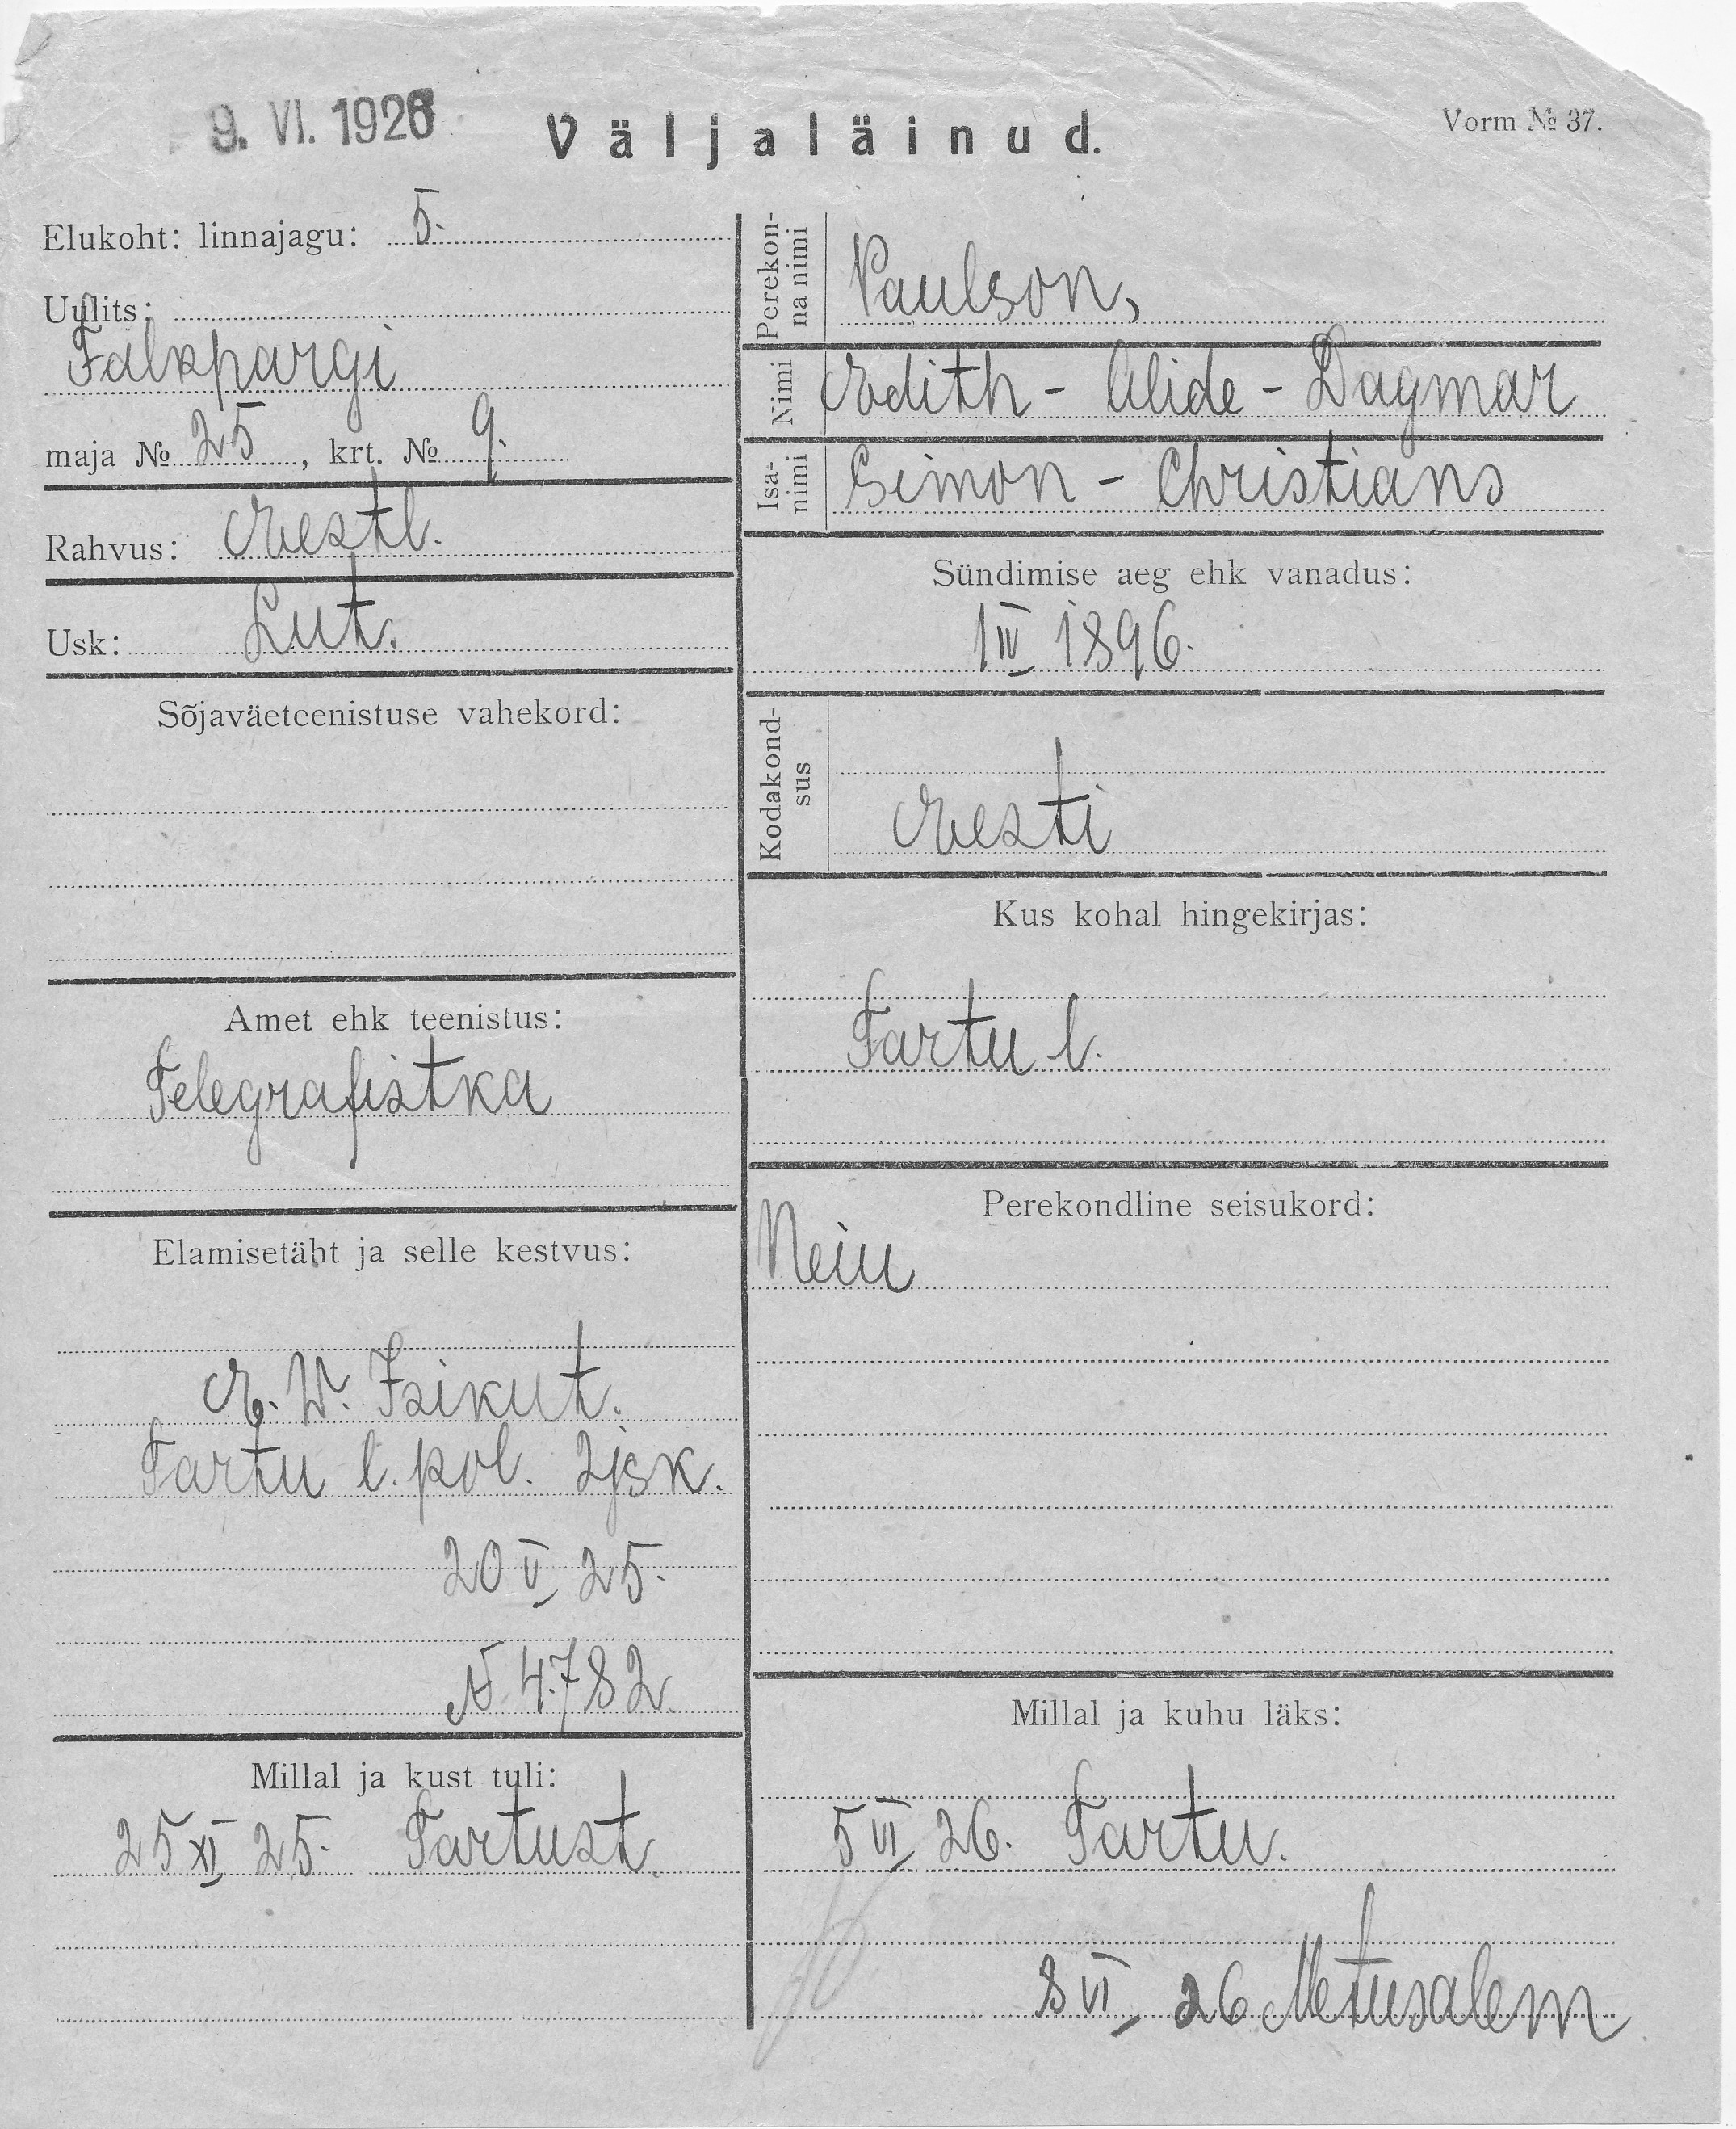 9. VI. 1926
Väljaläinud.
Vorm № 37.
Elukoht: linnajagu: 5.
Uulits:
Falkpargi
maja № 25, krt. № 9.
Rahvus: Eestl.
Usk: Lut.
Sõjaväeteenistuse vahekord:
Amet ehk teenistus:
Telegrafistka
Elamisetäht ja selle kestvus:
E. W. Isikut.
Tartu l. pol. 2jsk.
20 V 25.
N 4782.
Millal ja kust tuli:
25 XI 25. Tartust.
Perekon-
na nimi
Paulson,
Nimi
Edith - Alide - Dagmar
Isa-
nimi
Simon - Christians
Sündimise aeg ehk vanadus:
1 IV 1896.
Kodakond-
sus
Eesti
Kus kohal hingekirjas:
Tartu l.
Perekondline seisukord:
Neiu
Millal ja kuhu läks:
5 VI 26. Tartu.
8 VI 26 Metusalem